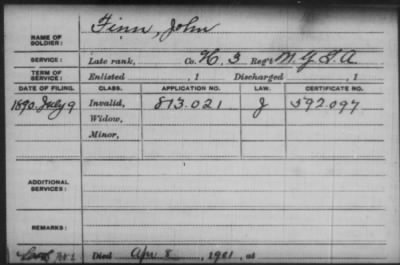 Finn, John
NAME OF SOLDIER:
SERVICE: Late rank, Co. H, 3 Reg't
TERM OF SERVICE: Enlisted , 1 Discharged , 1
DATE OF FILING. CLASS. APPLICATION NO. LAW. CERTIFICATE NO.
1890. July 9 Invalid, 813.021 J 592097
Widow,
Minor,
ADDITIONAL SERVICES:
REMARKS:
Died Apr 8 , 1901, at